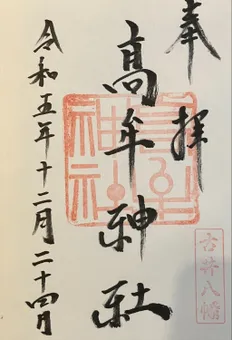 奉拝
高牟神社
令和五年十二月二十四日
古井八幡
高牟神社